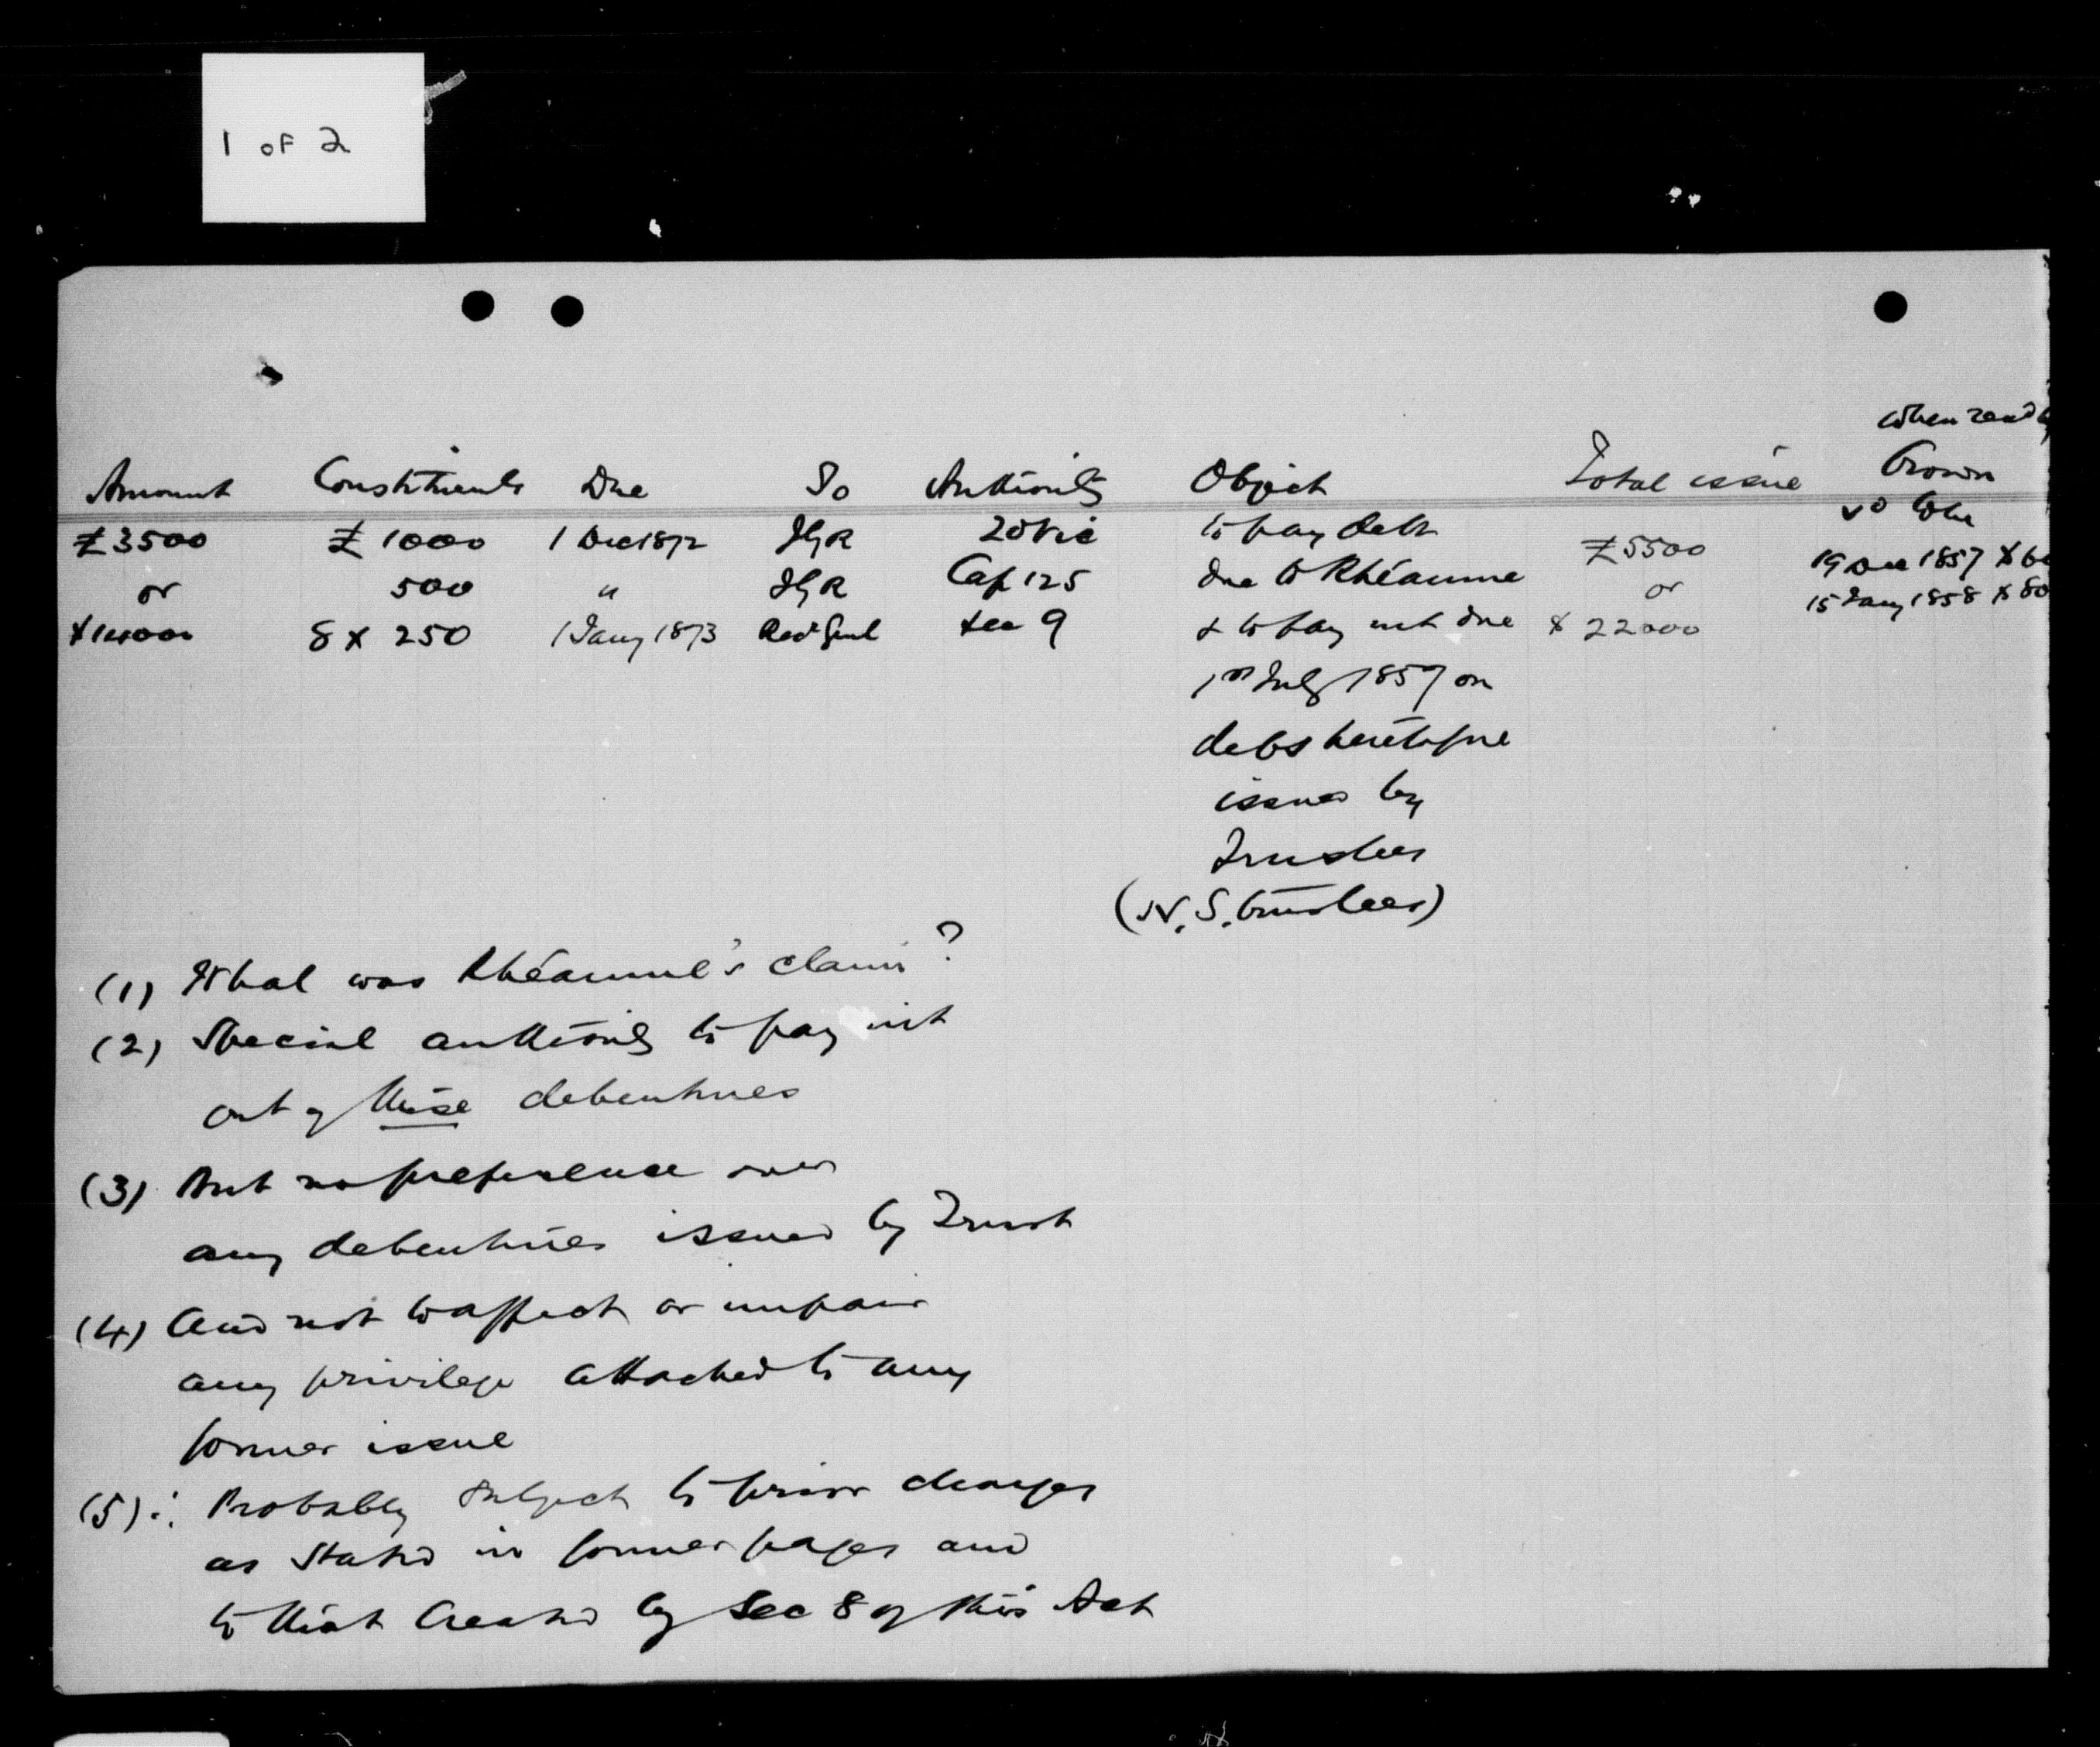 1 of 2
When recd by
Amount Constituents Due To Authority Object Total issue Crown
£3500 £1000 1 Dec 1872 20 Vic to pay debt £5500
or 500 " Cap 125 due to Rhéaume or 19 Dec 1857 $60
$14000 8 x 250 1 Jany 1873 Rec Genl Sec 9 & to pay int due $22000 15 Jany 1858 $80
1st July 1857 on
debs heretofore
issued by
Trustees
(N.S. trustees)
(1) What was Rhéaume's claim?
(2) Special authority to pay int
out of these debentures
(3) But no preference over
any debentures issued by Trust
(4) And not to affect or impair
any privilege attached to any
former issue
(5) ∴ Probably subject to prior charges
as stated in former pages and
to that created by Sec 8 of this Act